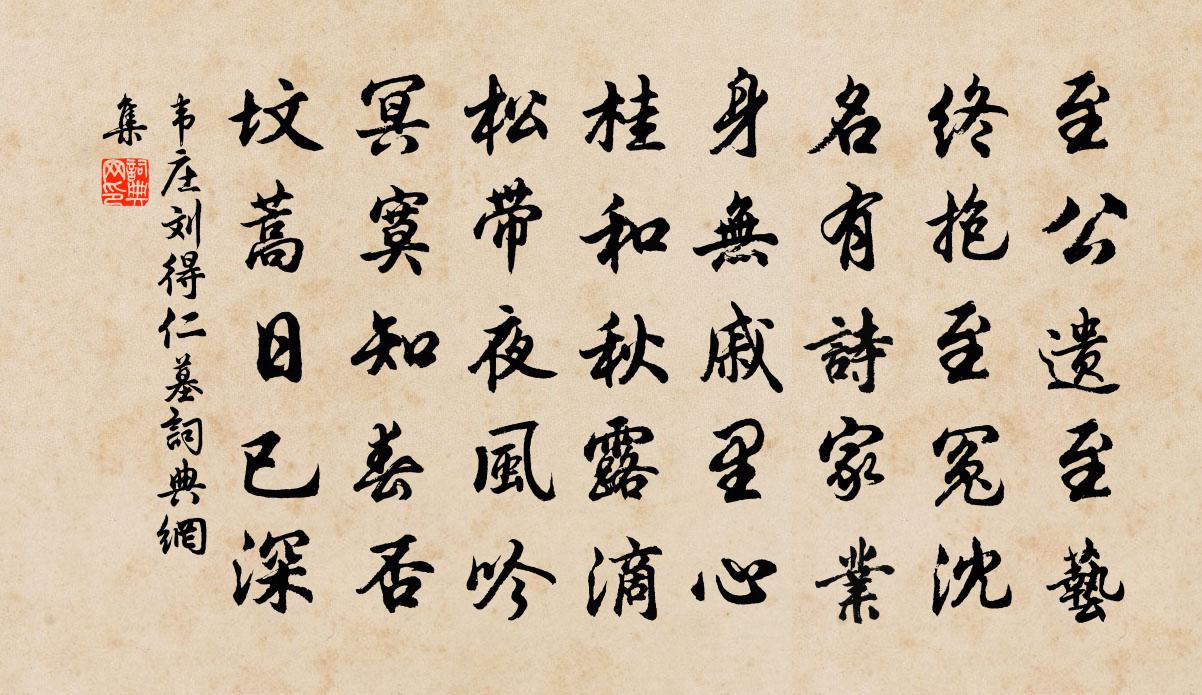 至公遺至藝
终抱至冤沈
名有詩家業
身無戚里心
桂和秋露滴
松带夜風吟
冥寞知春否
坟蒿日已深
韦庄刘得仁墓詞典網
集
詞典网印